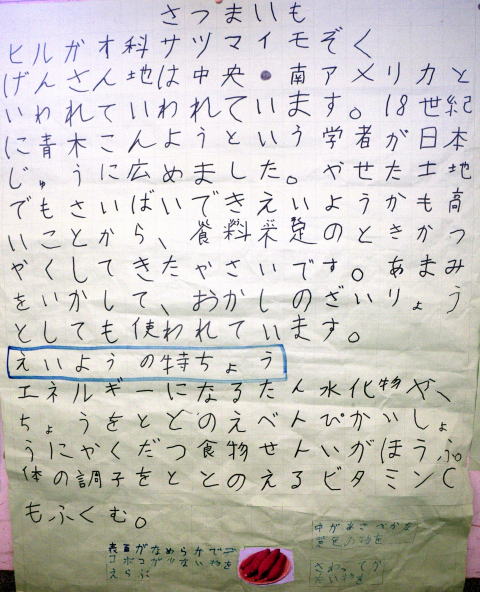 さつまいも
ヒルガオ科サツマイモぞく
げんさん地は中央・南アメリカと
いわれていわれています。18世紀
に青木こんようという学者が日本
じゅうに広めました。やせた土地
でもさいばいできえいようかも高
いことから、のときかつ
やくしてきたやさいです。あまみ
をいかして、おかしのざいりょう
としても使われています。
えいようの特ちょう
エネルギーになるたん水化物や、
ちょうをととのえべんぴかいしょ
うにやくだつ食物せんいがほうふ。
体の調子をととのえるビタミンC
もふくむ。
表面がなめらかで
コボコが少ない物を
えらぶ
中があざやかな
黄色の物を
さわってか
たい物を